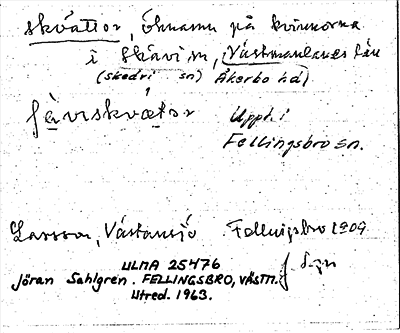 skvättor, öknamn på kvinnorna
i Skävi sn, Västmanlands län
(skedvi sn) Åkerbo hd)
fäviskvætor Uppt. i
Fellingsbro sn.
Larsson, Västansjö Fellingsbro 1909
ULMA 25476 J. Sgn
Jöran Sahlgren. FELLINGSBRO, VÄSTM.
Utred. 1963.